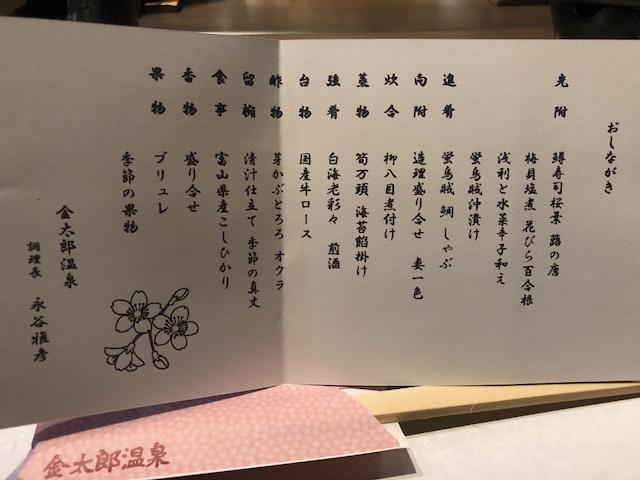 おしながき
先附 鱒寿司桜景 蕗の唐
梅貝塩煮 花びら百合根
浅利と水菜辛子和え
蛍烏賊沖漬け
進肴 蛍烏賊 鯛 しゃぶ
向附 造理盛り合せ 妻一色
炊合 柳八目煮付け
蒸物 筍万頭 海苔餡掛け
強肴 白海老彩々 煎酒
台物 国産牛ロース
酢物 芽かぶとろろ オクラ
留椀 清汁仕立て 季節の真丈
食事 富山県産こしひかり
香物 盛り合せ
果物 ブリュレ
季節の果物
金太郎温泉
調理長 永谷雅彦
金太郎温泉